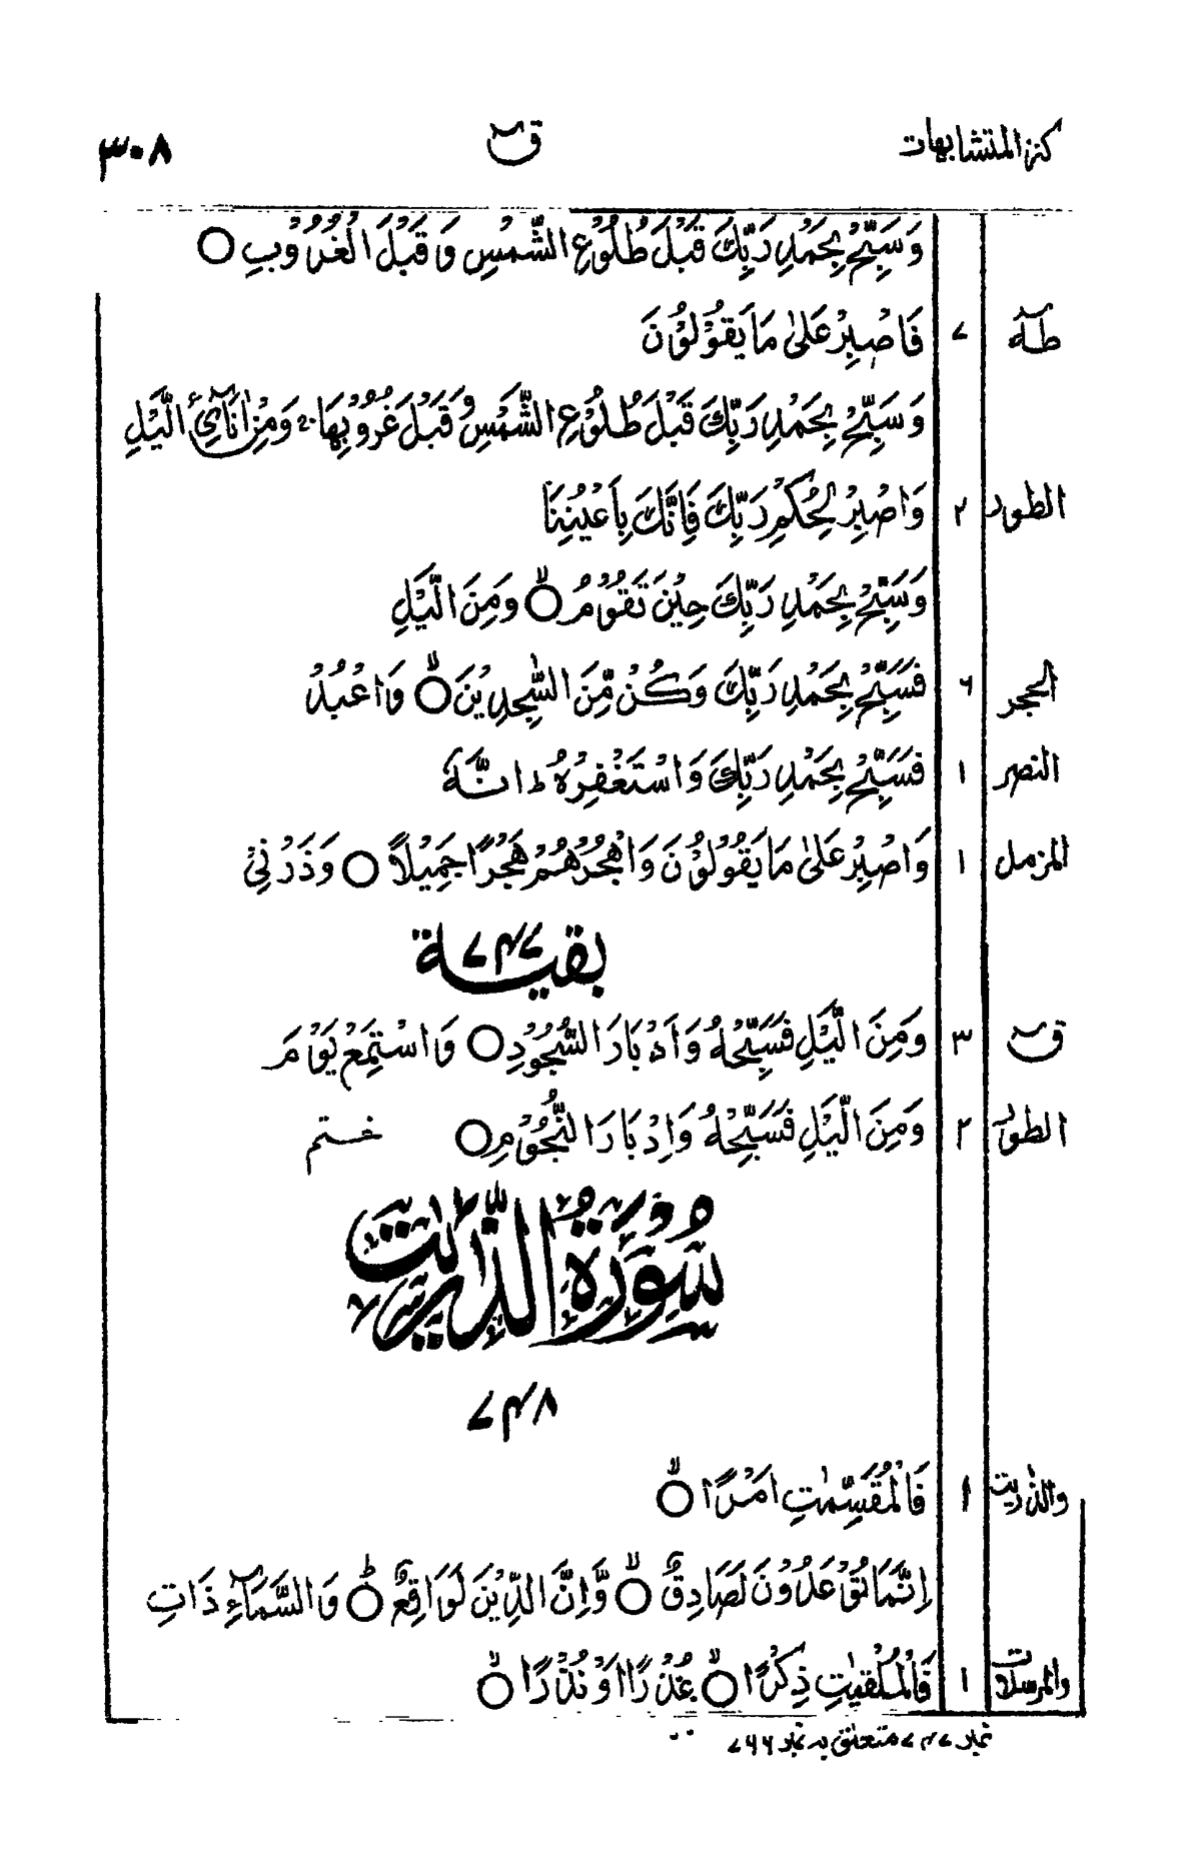 كنز المتشابهات قٓ ٣٠٨
وَسَبِّحْ بِحَمْدِ رَبِّكَ قَبْلَ طُلُوْعِ الشَّمْسِ وَقَبْلَ الْغُرُوْبِ ○
طٰهٰ ٧ فَاصْبِرْ عَلٰى مَا يَقُوْلُوْنَ
وَسَبِّحْ بِحَمْدِ رَبِّكَ قَبْلَ طُلُوْعِ الشَّمْسِ وَقَبْلَ غُرُوْبِهَا ۚ وَمِنْ اٰنَآئِ الَّيْلِ
الطور ٢ وَاصْبِرْ لِحُكْمِ رَبِّكَ فَاِنَّكَ بِاَعْيُنِنَا
وَسَبِّحْ بِحَمْدِ رَبِّكَ حِيْنَ تَقُوْمُ ○ۙ وَمِنَ الَّيْلِ
الحجر ٦ فَسَبِّحْ بِحَمْدِ رَبِّكَ وَكُنْ مِّنَ السّٰجِدِيْنَ ○ۙ وَاعْبُدْ
النصر ١ فَسَبِّحْ بِحَمْدِ رَبِّكَ وَاسْتَغْفِرْهُ ؕ اِنَّهٗ
المزمل ١ وَاصْبِرْ عَلٰى مَا يَقُوْلُوْنَ وَاهْجُرْهُمْ هَجْرًا جَمِيْلًا ○ وَذَرْنِيْ
بقية ٧٤٧
قٓ ٣ وَمِنَ الَّيْلِ فَسَبِّحْهُ وَاَدْبَارَ السُّجُوْدِ ○ وَاسْتَمِعْ يَوْمَ
الطور ٢ وَمِنَ الَّيْلِ فَسَبِّحْهُ وَاِدْبَارَ النُّجُوْمِ ○ ختم
سُوْرَةُ الذّٰرِيٰتِ
٧٤٨
والذٰريٰت ١ فَالْمُقَسِّمٰتِ اَمْرًا ○ۙ
اِنَّمَا تُوْعَدُوْنَ لَصَادِقٌ ○ۙ وَّاِنَّ الدِّيْنَ لَوَاقِعٌ ○ؕ وَالسَّمَآءِ ذَاتِ
والمرسلات ١ فَالْمُلْقِيٰتِ ذِكْرًا ○ۙ عُذْرًا اَوْ نُذْرًا ○ۙ
نمبر ٧٤٧ متعلق بہ نمبر ٧٦٦